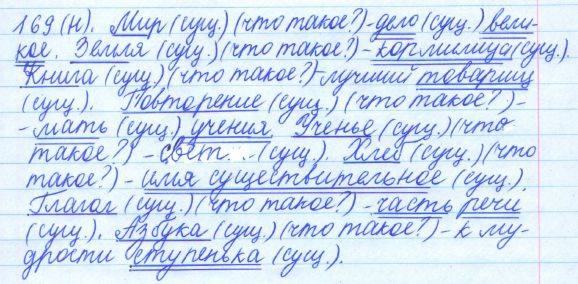 169(н). Мир (сущ.) (что такое?)-дело (сущ.) вели-
кое. Земля (сущ.) (что такое?) - кормилица (сущ.).
Книга (сущ.) (что такое?)-лучший товарищ
(сущ.). Повторение (сущ.) (что такое?) -
- мать (сущ.) учения. Ученье (сущ.) (что
такое?) - свет... (сущ.). Хлеб (сущ.) (что
такое?) - имя существительное (сущ.).
Глагол (сущ.) (что такое?) - часть речи
(сущ.). Азбука (сущ.) (что такое?) - к му-
дрости ступенька (сущ.).